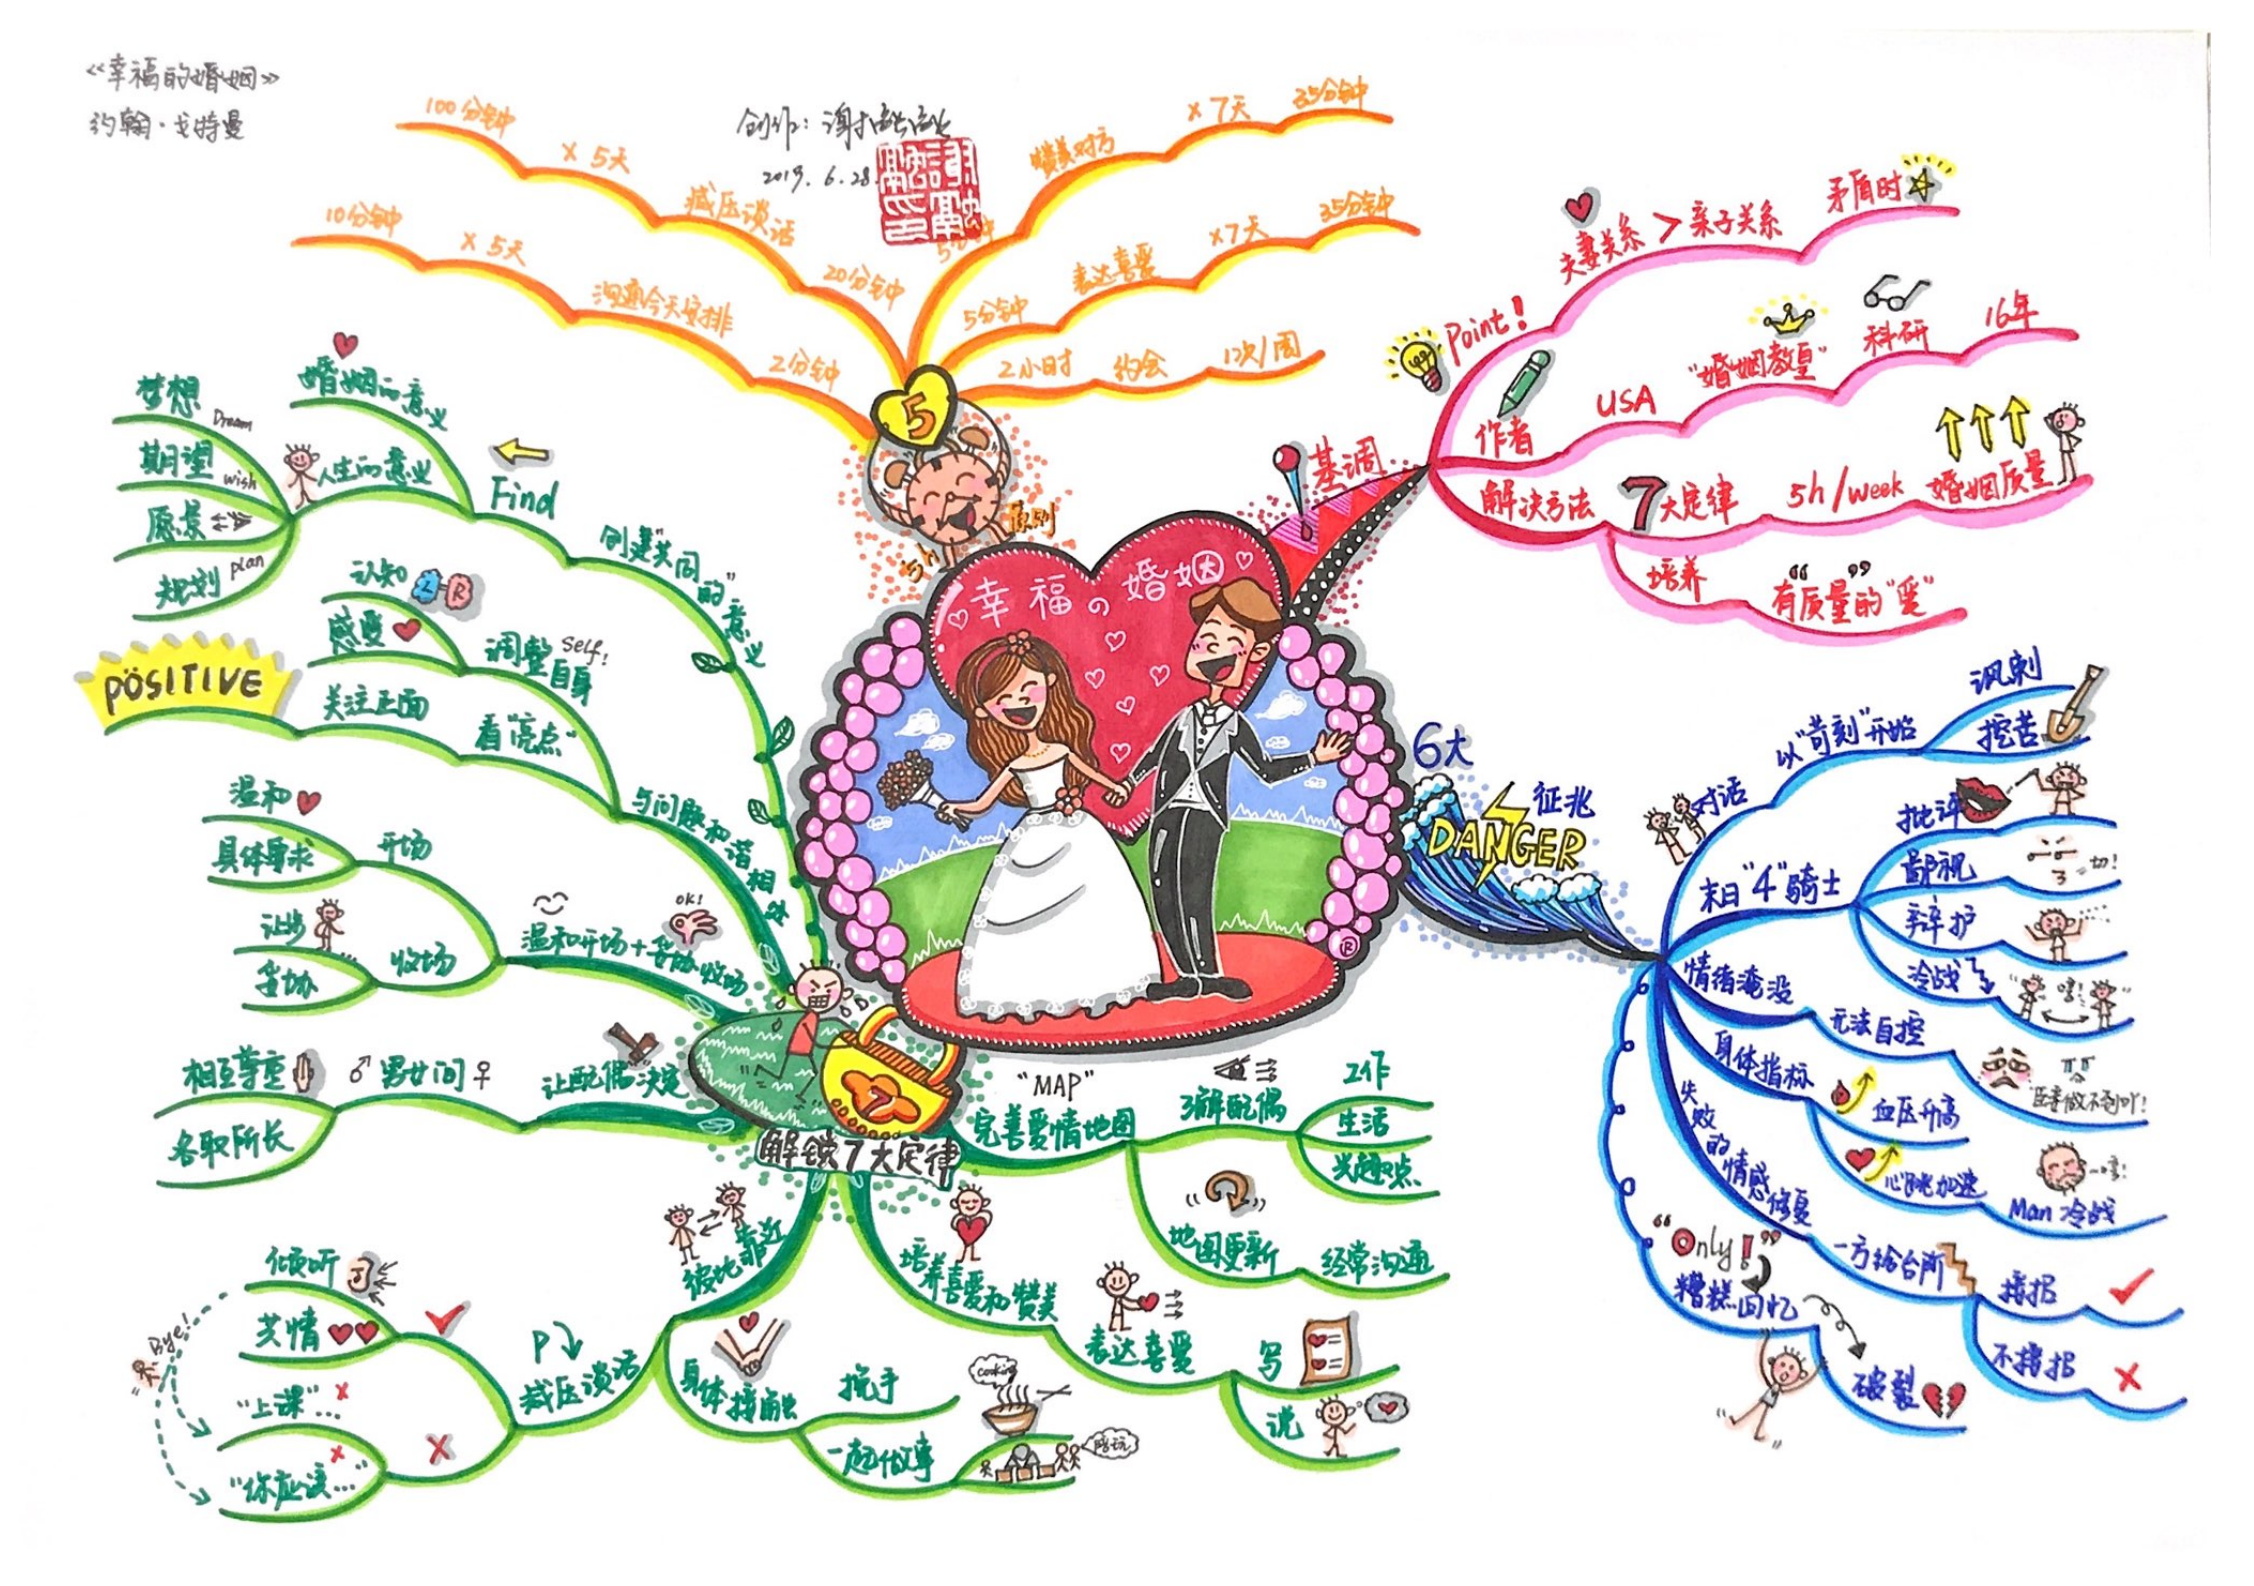 《幸福的婚姻》
约翰·戈特曼
2019.6.28.
幸福の婚姻
基调
Point!
夫妻关系 > 亲子关系
矛盾时
作者
USA
"婚姻教皇"
科研
16年
解决方法
7大定律
5h/week
婚姻质量
培养
"有质量"的"爱"
6大
DANGER
征兆
对话
以"苛刻"开始
讽刺
挖苦
末日"4"骑士
批评
鄙视
一切!
辩护
冷战
情绪淹没
无法自控
身体指标
血压升高
心跳加速
Man 冷战
失败的情感修复
一方给台阶
接招
不接招
"Only!"
糟糕回忆
破裂
解锁7大定律
7
"MAP"
完善爱情地图
了解配偶
工作
生活
兴趣点
地图更新
经常沟通
培养喜爱和赞美
表达喜爱
写
说
彼此靠近
身体接触
挽手
一起做事
cooking
陪玩
P
减压谈话
倾听
共情
Bye!
"上课"...
"你应该..."
让配偶决定
♂男女间♀
相互尊重
各取所长
OK!
温和开场+妥协收场
开场
温和
具体要求
收场
让步
妥协
与问题和谐相处
调整自身
self!
认知
L R
感受
看"亮点"
关注正面
POSITIVE
创建"共同的"意义
Find
婚姻的意义
人生的意义
梦想
Dream
期望
wish
愿景
规划
plan
5
5h
原则
2分钟
沟通今天安排
×5天
10分钟
20分钟
减压谈话
×5天
100分钟
5分钟
赞美对方
×7天
35分钟
5分钟
表达喜爱
×7天
35分钟
2小时
约会
1次/周